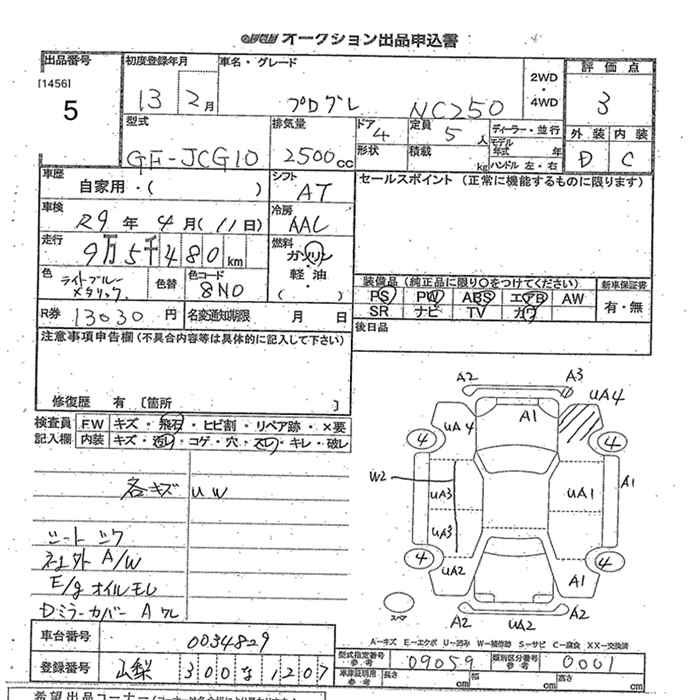 オークション出品申込書
出品番号 [1456] 5
初度登録年月 13 2月
車名・グレード プログレ NC250
2WD・4WD
評価点 3
外装 内装
D C
型式 GF-JCG10
排気量 2500cc
ドア 4 形状
定員 5人 積載 kg
ディーラー・並行
モデル年式 年
ハンドル 左・右
車歴 自家用・( )
シフト AT
車検 R9年 4月(11日)
冷房 AAC
走行 9万5千480km
燃料 ガソリン 軽油 ・( )
色 ライトブルーメタリック
色替
色コード 8N0
R券 13030円
名変通知期限 月 日
セールスポイント (正常に機能するものに限ります)
装備品 (純正品に限り○をつけてください)
新車保証書
PS PW ABS エアB AW
有・無
SR ナビ TV カワ
後日品
注意事項申告欄 (不具合内容等は具体的に記入して下さい)
修復歴 有 〔箇所 〕
検査員記入欄 FW キズ・飛石・ヒビ割・リペア跡・×要
内装 キズ・汚レ・コゲ・穴・スレ・キレ・破レ
各キズ UW
シートシワ
A/W
E/g オイルモレ
Dミラーカバー A ワレ
A2 A3
UA4 A1 UA4
4 4
W2 UA3 UA1 A1
UA3
4 4
UA2 A1
スペア A2 UA2 A2
A－キズ E－エクボ U－凹み W－補修跡 S－サビ C－腐食 XX－交換済
車台番号 0034829
登録番号 山梨 300な1207
型式指定番号参考 09059
類別区分番号参考 0001
車庫証明用参考 長さ cm 幅 cm 高さ cm
希望出品コーナー